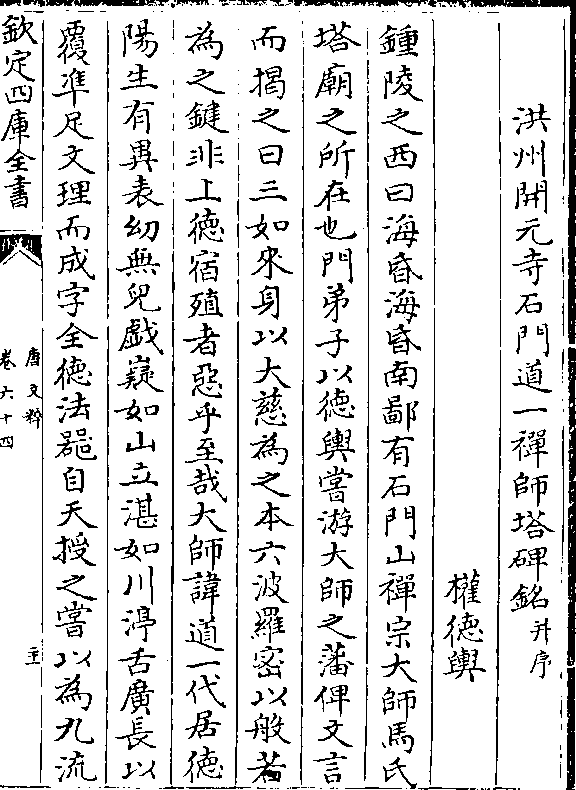 洪州開元寺石門道一禪師塔碑銘并序
權德輿
鍾陵之西曰海昏海昏南鄙有石門山禪宗大師馬氏
塔廟之所在也門弟子以德輿嘗游大師之藩俾文言
而揭之曰三如來身以大慈為之本六波羅密以般若
為之鍵非上德宿殖者惡乎至哉大師諱道一代居德
陽生有異表幼無兒戲嶷如山立湛如川渟舌廣長以
覆準足文理而成字全德法器自天授之嘗以為九流
欽定四庫全書
唐文粹
卷六十四